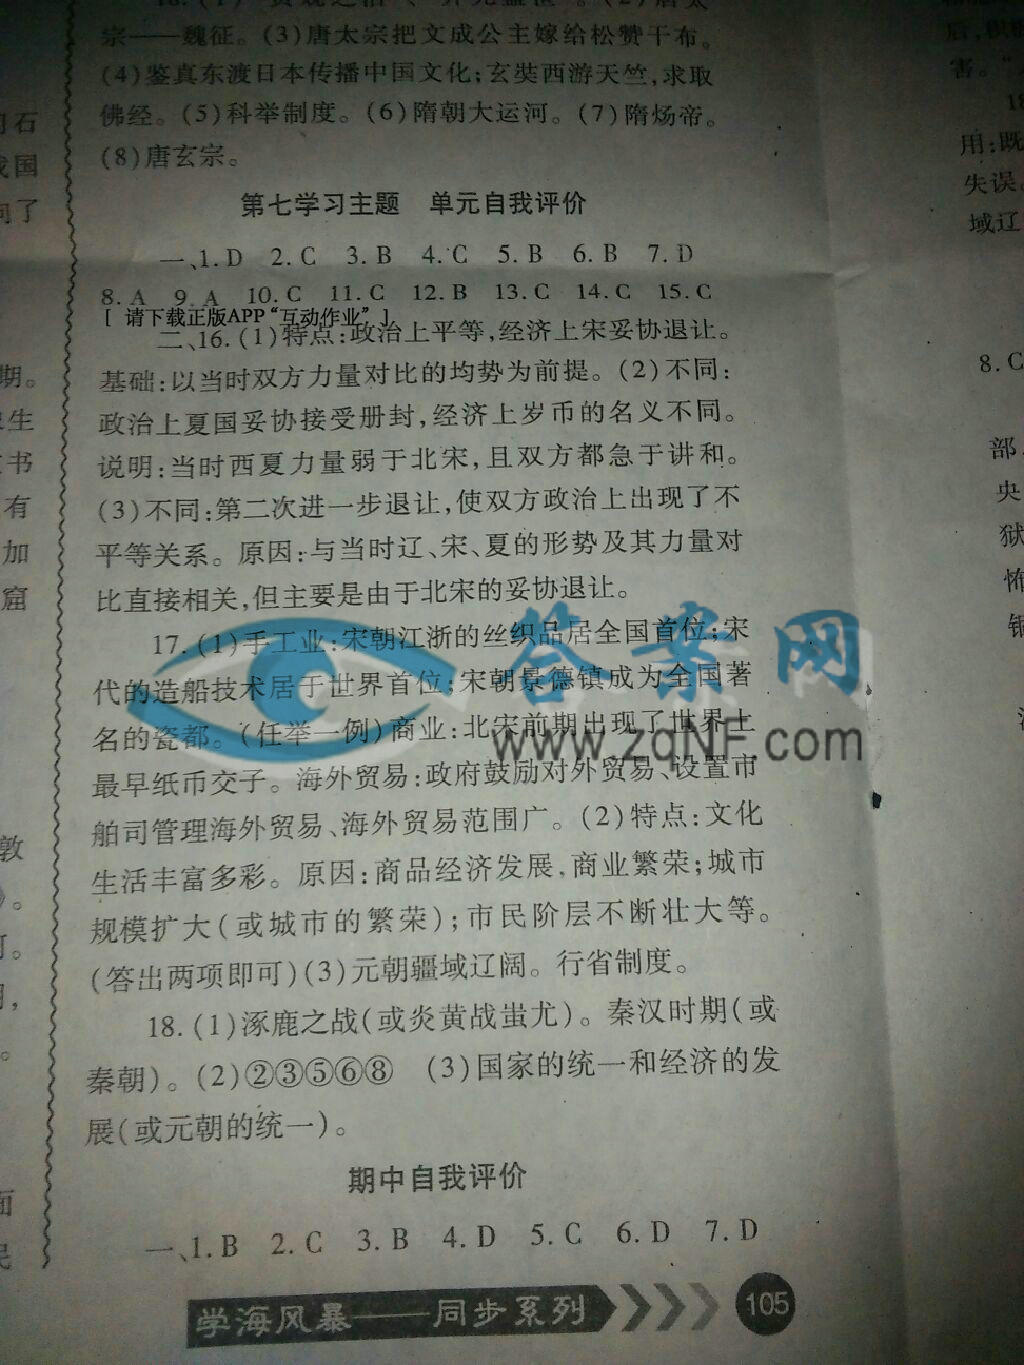 宗——魏征。(3)唐太宗把文成公主嫁给松赞干布。
(4)鉴真东渡日本传播中国文化;玄奘西游天竺,求取
佛经。(5)科举制度。(6)隋朝大运河。(7)隋炀帝。
(8)唐玄宗。
第七学习主题 单元自我评价
一、1.D 2.C 3.B 4.C 5.B 6.B 7.D
8.A 9.A 10.C 11.C 12.B 13.C 14.C 15.C
[ 请下载正版APP“互动作业” ]
二、16.(1)特点:政治上平等,经济上宋妥协退让。
基础:以当时双方力量对比的均势为前提。(2)不同:
政治上夏国妥协接受册封,经济上岁币的名义不同。
说明:当时西夏力量弱于北宋,且双方都急于讲和。
(3)不同:第二次进一步退让,使双方政治上出现了不
平等关系。原因:与当时辽、宋、夏的形势及其力量对
比直接相关,但主要是由于北宋的妥协退让。
17.(1)手工业:宋朝江浙的丝织品居全国首位;宋
代的造船技术居于世界首位;宋朝景德镇成为全国著
名的瓷都。(任举一例)商业:北宋前期出现了世界上
最早纸币交子。海外贸易:政府鼓励对外贸易、设置市
舶司管理海外贸易、海外贸易范围广。(2)特点:文化
生活丰富多彩。原因:商品经济发展,商业繁荣;城市
规模扩大(或城市的繁荣);市民阶层不断壮大等。
(答出两项即可)(3)元朝疆域辽阔。行省制度。
18.(1)涿鹿之战(或炎黄战蚩尤)。秦汉时期(或
秦朝)。(2)②③⑤⑥⑧ (3)国家的统一和经济的发
展(或元朝的统一)。
期中自我评价
一、1.B 2.C 3.B 4.D 5.C 6.D 7.D
学海风暴——同步系列
105
答案网
www.zqNF.com
石
国
了
期。
生
书
有
加
窟
敦
用:既
失误。
域辽
8.C
部
央
狱
怖